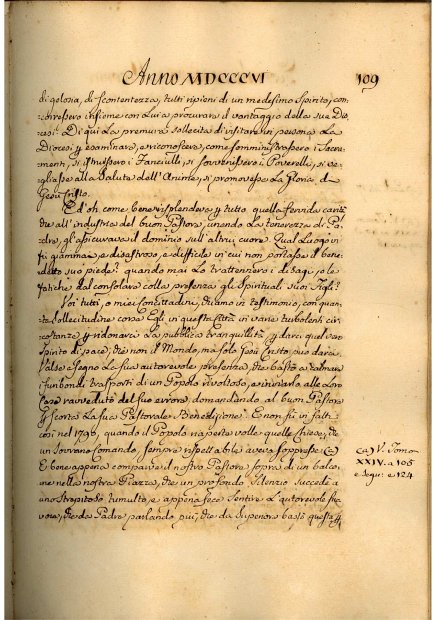 Anno MDCCCVI
109
di gelosia, di scontentezza, tutti ripieni di un medesimo Spirito, con-
corressero insieme con Lui a procurare il vantaggio della sua Dio-
cesi. Di qui La premura sollecita di visitare in persona La
Diocesi, esaminare, e riconoscere, come somministrassero i Sacra-
menti, si istruissero i Fanciulli, si sovvenissero i Poverelli, si ve-
gliasse alla Salute dell'Anime, si promovesse La Gloria di
Gesù Cristo.
Ed oh come bene risplendeva tutto quella fervida carità
che all'industrie del buon Pastore, unendo La tenerezza di Pa-
dre, gl'assicurava il dominio sull'altrui cuore. Qual Luogo vi
fu giammai disastroso, e difficile in cui non portasse il bene-
detto suo piede? quando mai Lo trattennero i disagi, o le
fatiche dal consolare colla presenza gli Spirituali suoi Figli?
Voi tutti, o miei Concittadini, ditemi in testimonio, con quan-
ta sollecitudine corse Egli in questa Città in varie turbolenti cir-
costanze a ridonarci La pubblica tranquillità, a darci quel vero
Spirito di pace, che non il Mondo, ma solo Gesù Cristo può dare.
Valse a segno La sua autorevole presenza, che bastò a calmare
i furibondi trasporti di un Popolo rivoltoso, e rinviarlo alle Loro
Case ravveduto del suo errore, domandando al buon Pastore
per scorta La sua Pastorale Benedizione. E non fù in fatti
così nel 1796, quando il Popolo riaperte volle quelle Chiese, che
un Sovrano Comando, sempre rispettabile aveva soppresse (a)
E bene appena comparve il nostro Pastore sopra di un balco-
ne nella nostra Piazza, che un profondo silenzio succedè a
uno strepitoso tumulto, e appena fece sentire L'autorevole sua
voce, che da Padre parlando più, che da Superiore bastò questa
(a) V. Tomo
XXIV. a 105
e segu: e 124